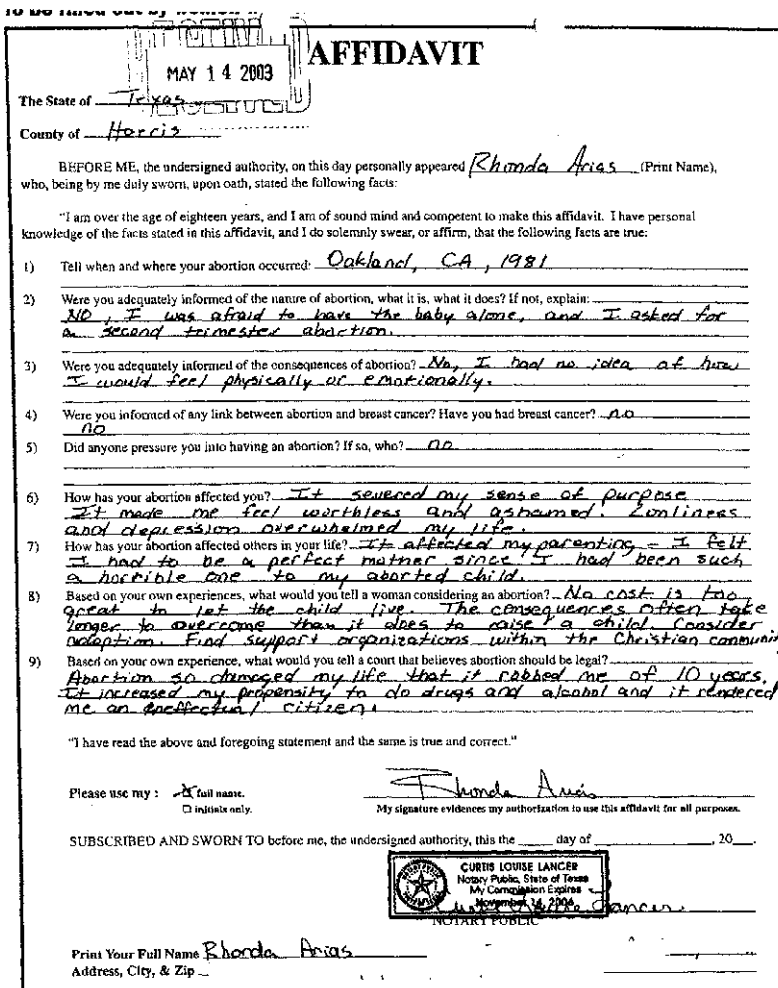 To be filled out by women
AFFIDAVIT
MAY 14 2003
The State of Texas
County of Harris
BEFORE ME, the undersigned authority, on this day personally appeared Rhonda Arias (Print Name),
who, being by me duly sworn, upon oath, stated the following facts:
"I am over the age of eighteen years, and I am of sound mind and competent to make this affidavit. I have personal
knowledge of the facts stated in this affidavit, and I do solemnly swear, or affirm, that the following facts are true:
1) Tell when and where your abortion occurred: Oakland, CA, 1981
2) Were you adequately informed of the nature of abortion, what it is, what it does? If not, explain:
NO, I was afraid to have the baby alone, and I asked for
a second trimester abortion.
3) Were you adequately informed of the consequences of abortion? No, I had no idea of how
I would feel physically or emotionally.
4) Were you informed of any link between abortion and breast cancer? Have you had breast cancer? no
no
5) Did anyone pressure you into having an abortion? If so, who? no
6) How has your abortion affected you? It severed my sense of purpose
It made me feel worthless and ashamed. Lonliness
and depression overwhelmed my life.
7) How has your abortion affected others in your life? It affected my parenting - I felt
I had to be a perfect mother since I had been such
a horrible one to my aborted child.
8) Based on your own experiences, what would you tell a woman considering an abortion? No cost is too
great to let the child live. The consequences often take
longer to overcome than it does to raise a child. Consider
adoption. Find support organizations within the Christian community
9) Based on your own experience, what would you tell a court that believes abortion should be legal?
Abortion so damaged my life that it robbed me of 10 years.
It increased my propensity to do drugs and alcohol and it rendered
me an ineffectual citizen.
"I have read the above and foregoing statement and the same is true and correct."
Please use my : full name.
initials only.
Rhonda Arias
My signature evidences my authorization to use this affidavit for all purposes.
SUBSCRIBED AND SWORN TO before me, the undersigned authority, this the ____ day of ____, 20__.
CURTIS LOUISE LANCER
Notary Public, State of Texas
My Commission Expires
November 14, 2006
Curtis Louise Lancer
NOTARY PUBLIC
Print Your Full Name Rhonda Arias
Address, City, & Zip